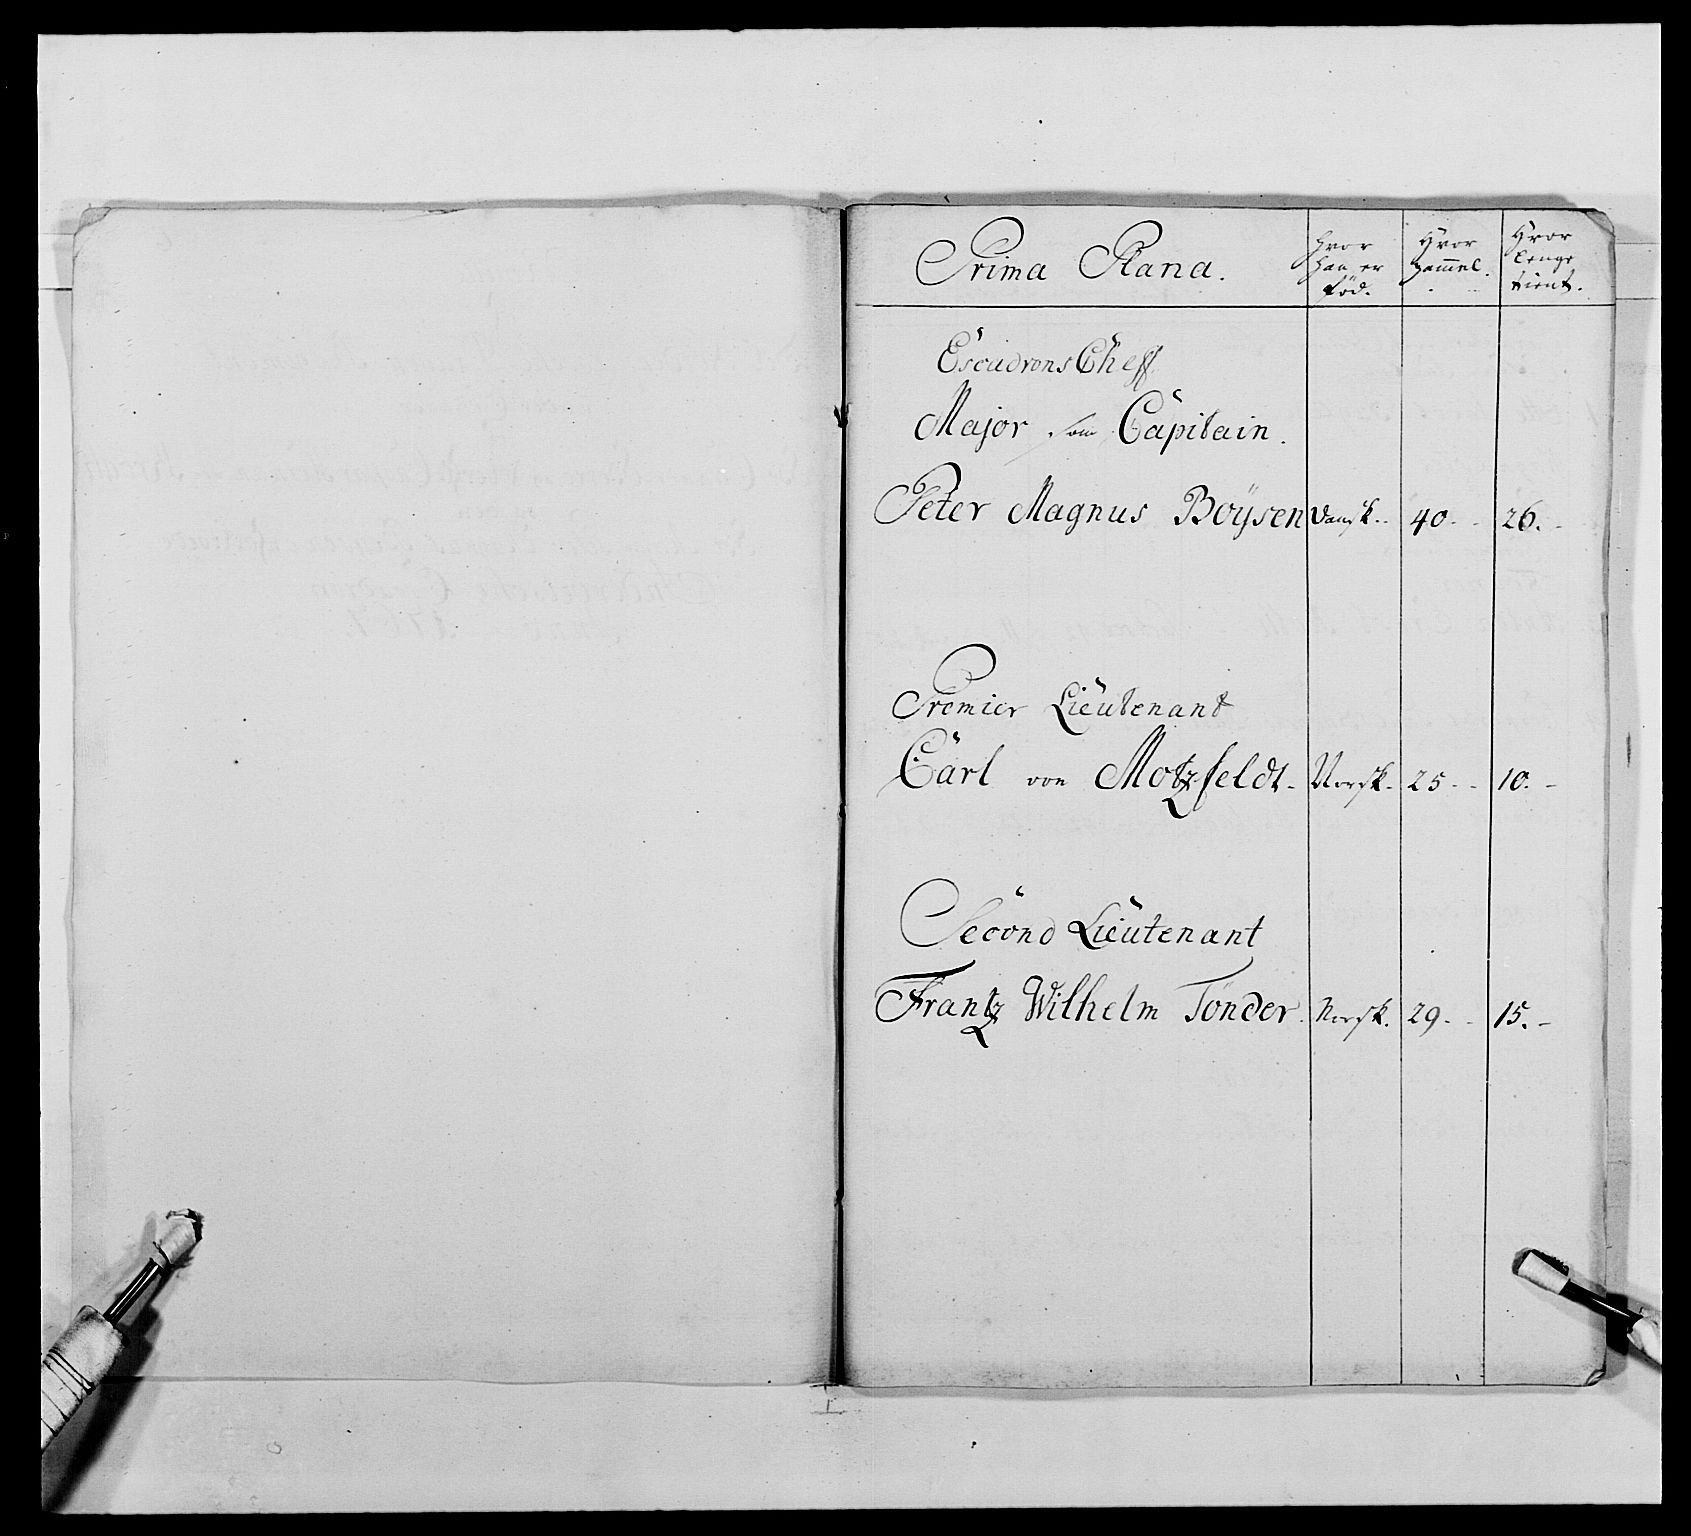 Prima Plana.
Hvor han er föd.
Hvor gammel.
Hvor lenge tient.
Escadrons Cheff
Major som Capitain.
Peter Magnus Boÿsen Dansk. 40. 26.
Premier Lieutenant
Carl von Motzfeldt. Norsk. 25. 10.
Second Lieutenant
Frantz Wilhelm Tönder. Norsk. 29. 15.